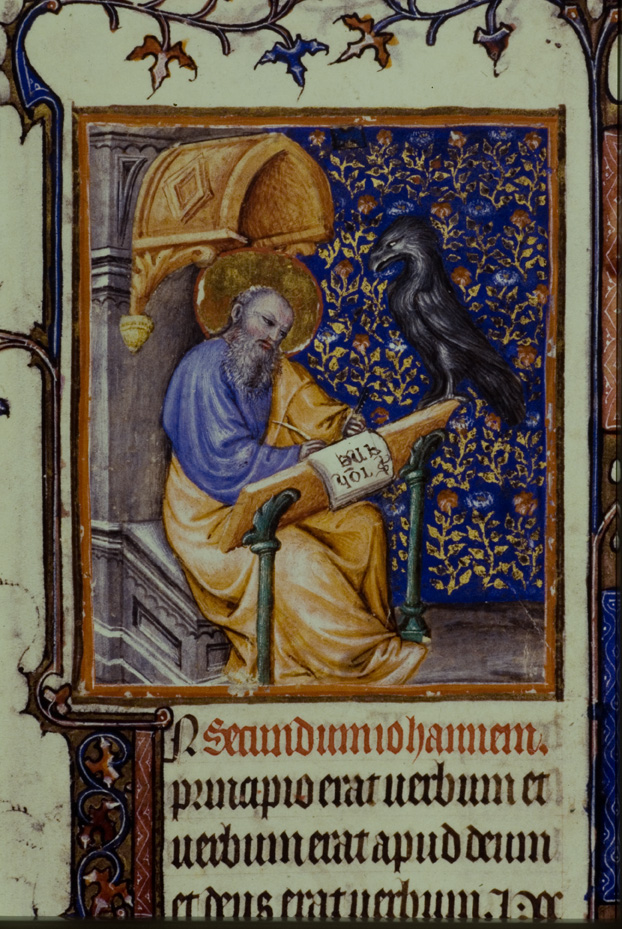 N Secundum iohannem.
principio erat uerbum et
uerbum erat apud deum
et deus erat uerbum.